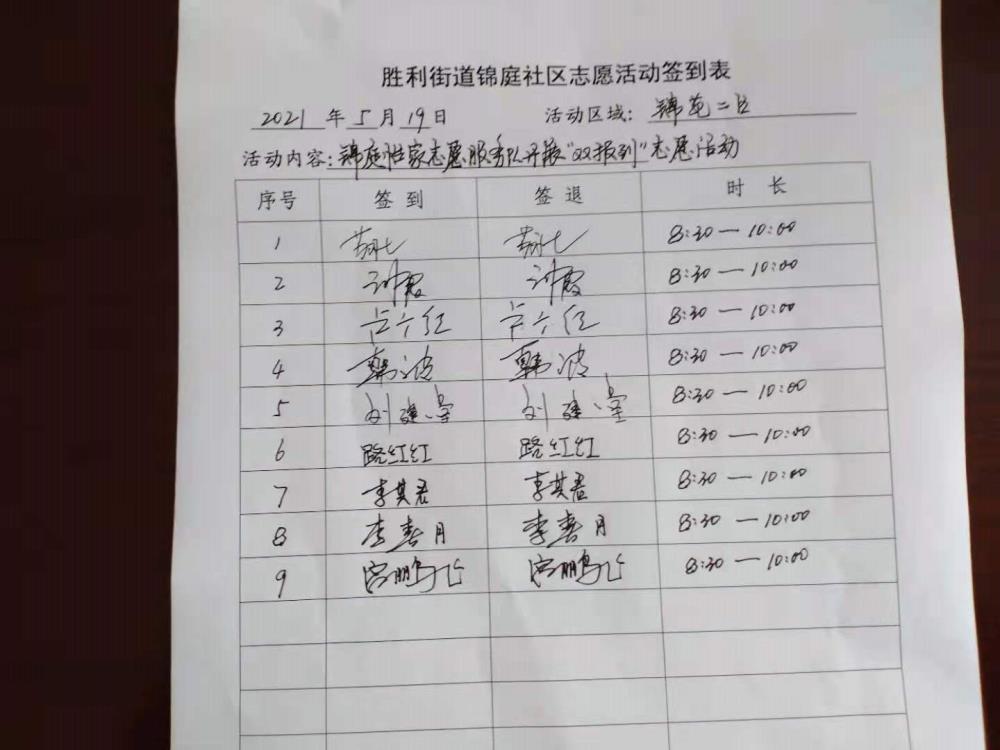 胜利街道锦庭社区志愿活动签到表
2021 年 5 月 19 日 活动区域: 锦苑二区
活动内容: 锦庭性家志愿服务队开展"双报到"志愿活动
序号 签到 签退 时长
1 8:30—10:00
2 8:30—10:00
3 卢六红 卢六红 8:30—10:00
4 韩波 韩波 8:30—10:00
5 8:30—10:00
6 路红红 路红红 8:30—10:00
7 李其君 李其君 8:30—10:00
8 李春月 李春月 8:30—10:00
9 8:30—10:00